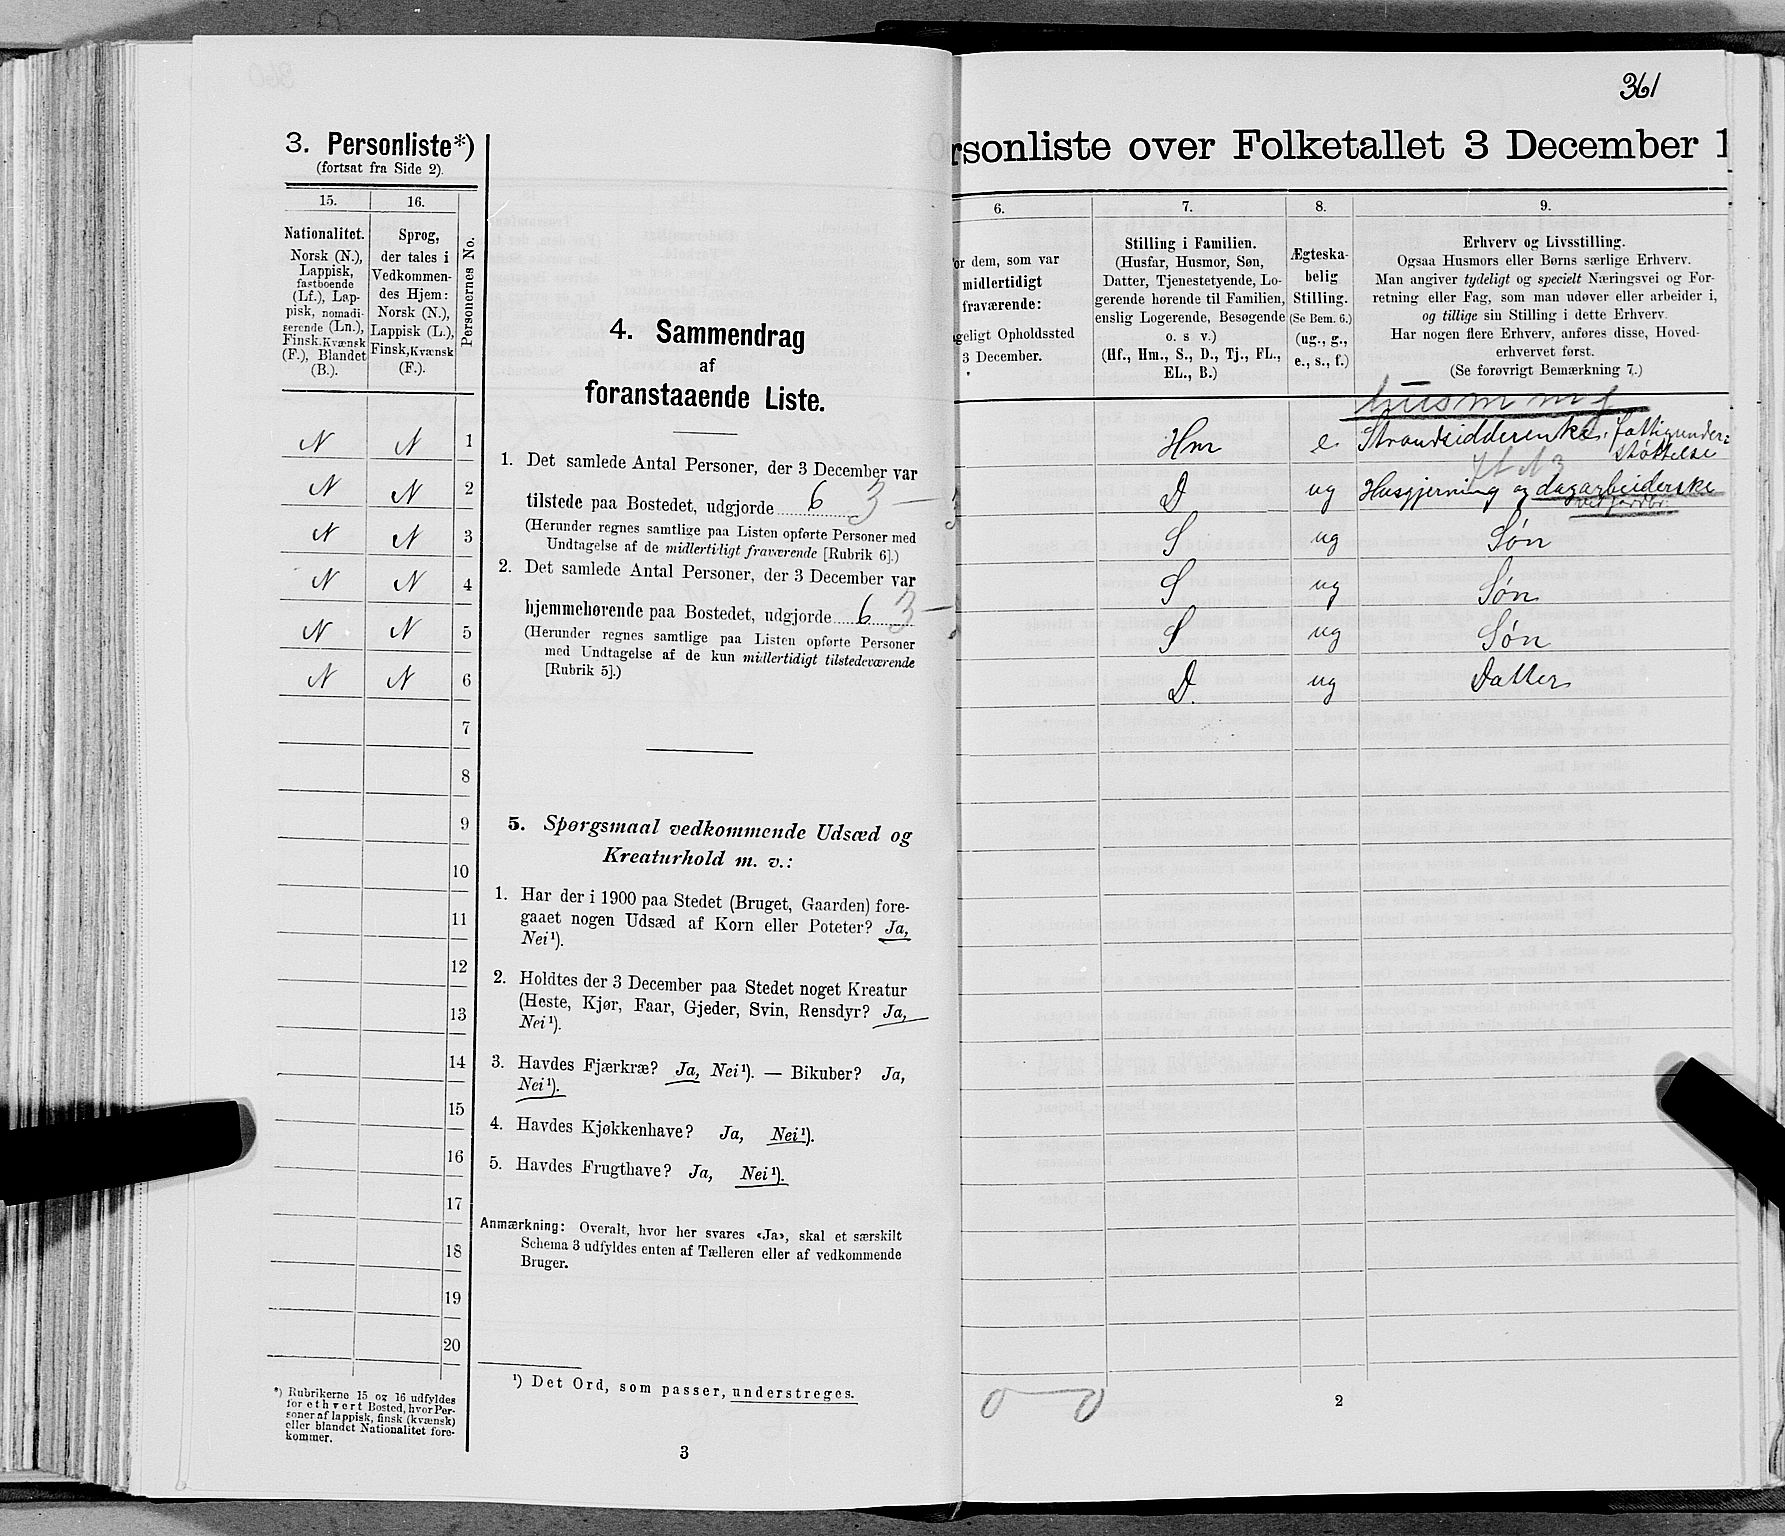 3. Personliste*)
(fortsat fra Side 2).
15.
16.
Personernes No.
Nationalitet.
Norsk (N.),
Lappisk,
fastboende
(Lf.), Lap-
pisk, nomadi-
serende (Ln.),
Finsk, Kvænsk
(F.), Blandet
(B.).
Sprog,
der tales i
Vedkommen-
des Hjem:
Norsk (N.),
Lappisk (L.),
Finsk, Kvænsk
(F.).
N N 1
N N 2
N N 3
N N 4
N N 5
N N 6
7
8
9
10
11
12
13
14
15
16
17
18
19
20
*) Rubrikerne 15 og 16 udfyldes
for ethvert Bosted, hvor Per-
soner af lappisk, finsk (kvænsk)
eller blandet Nationalitet fore-
kommer.
4. Sammendrag
af
foranstaaende Liste.
1. Det samlede Antal Personer, der 3 December var
tilstede paa Bostedet, udgjorde 6 3 —
(Herunder regnes samtlige paa Listen opførte Personer med
Undtagelse af de midlertidigt fraværende [Rubrik 6].)
2. Det samlede Antal Personer, der 3 December var
hjemmehørende paa Bostedet, udgjorde 6 3 —
(Herunder regnes samtlige paa Listen opførte Personer
med Undtagelse af de kun midlertidigt tilstedeværende
[Rubrik 5].)
5. Spørgsmaal vedkommende Udsæd og
Kreaturhold m. v.:
1. Har der i 1900 paa Stedet (Bruget, Gaarden) fore-
gaaet nogen Udsæd af Korn eller Poteter? Ja,
Nei¹).
2. Holdtes der 3 December paa Stedet noget Kreatur
(Heste, Kjør, Faar, Gjeder, Svin, Rensdyr? Ja,
Nei¹).
3. Havdes Fjærkræ? Ja, Nei¹). — Bikuber? Ja,
Nei¹).
4. Havdes Kjøkkenhave? Ja, Nei¹).
5. Havdes Frugthave? Ja, Nei¹).
Anmærkning: Overalt, hvor her svares «Ja», skal et særskilt
Schema 3 udfyldes enten af Tælleren eller af vedkommende
Bruger.
¹) Det Ord, som passer, understreges.
3
361
rsonliste over Folketallet 3 December 1
6.
7.
8.
9.
or dem, som var
midlertidigt
fraværende:
geligt Opholdssted
3 December.
Stilling i Familien.
(Husfar, Husmor, Søn,
Datter, Tjenestetyende, Lo-
gerende hørende til Familien,
enslig Logerende, Besøgende
o. s v.)
(Hf., Hm., S., D., Tj., FL.,
EL., B.)
Ægteska-
belig
Stilling.
(Se Bem. 6.)
(ug., g.,
e., s., f.)
Erhverv og Livsstilling.
Ogsaa Husmors eller Børns særlige Erhverv.
Man angiver tydeligt og specielt Næringsvei og For-
retning eller Fag, som man udøver eller arbeider i,
og tillige sin Stilling i dette Erhverv.
Har nogen flere Erhverv, anføres disse, Hoved-
erhvervet først.
(Se forøvrigt Bemærkning 7.)
Hm e Strandsidderenke. fattigunder-
støttelse
D ug Husgjerning og dagarbeiderske
ved jordbr.
S ug Søn
S ug Søn
S ug Søn
D. ug Datter
0 — 0
2